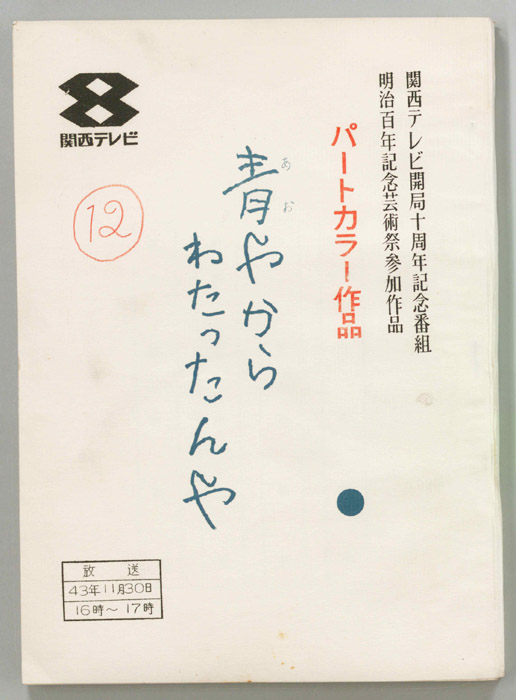 関西テレビ開局十周年記念番組
明治百年記念芸術祭参加作品
パートカラー作品
あお
青やから
わたったんや
8
関西テレビ
12
放送
43年11月30日
16時〜17時